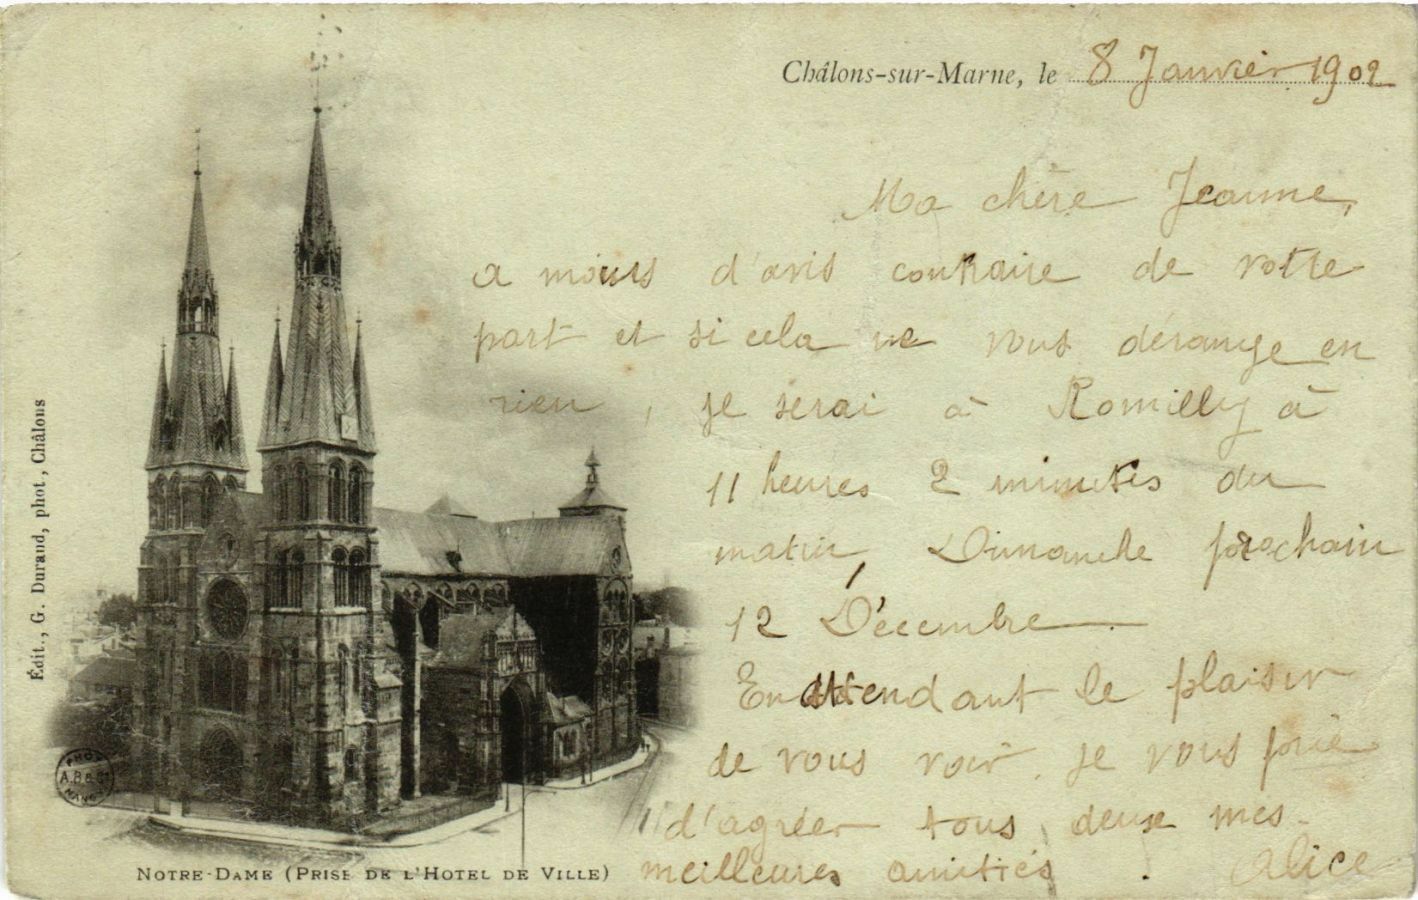 Châlons-sur-Marne, le 8 Janvier 1902
Ma chère Jeanne,
a moins d'avis contraire de votre
part et si cela ne vous dérange en
rien, je serai à Romilly à
11 heures 2 minutes du
matin, Dimanche prochain
12 Décembre
En attendant le plaisir
de vous voir. je vous prie
d'agréer tous deux mes
meilleures amitiés. Alice
Édit., G. Durand, phot., Châlons
PHOT
A.B & Cie
NANCY
NOTRE-DAME (PRISE DE L'HOTEL DE VILLE)